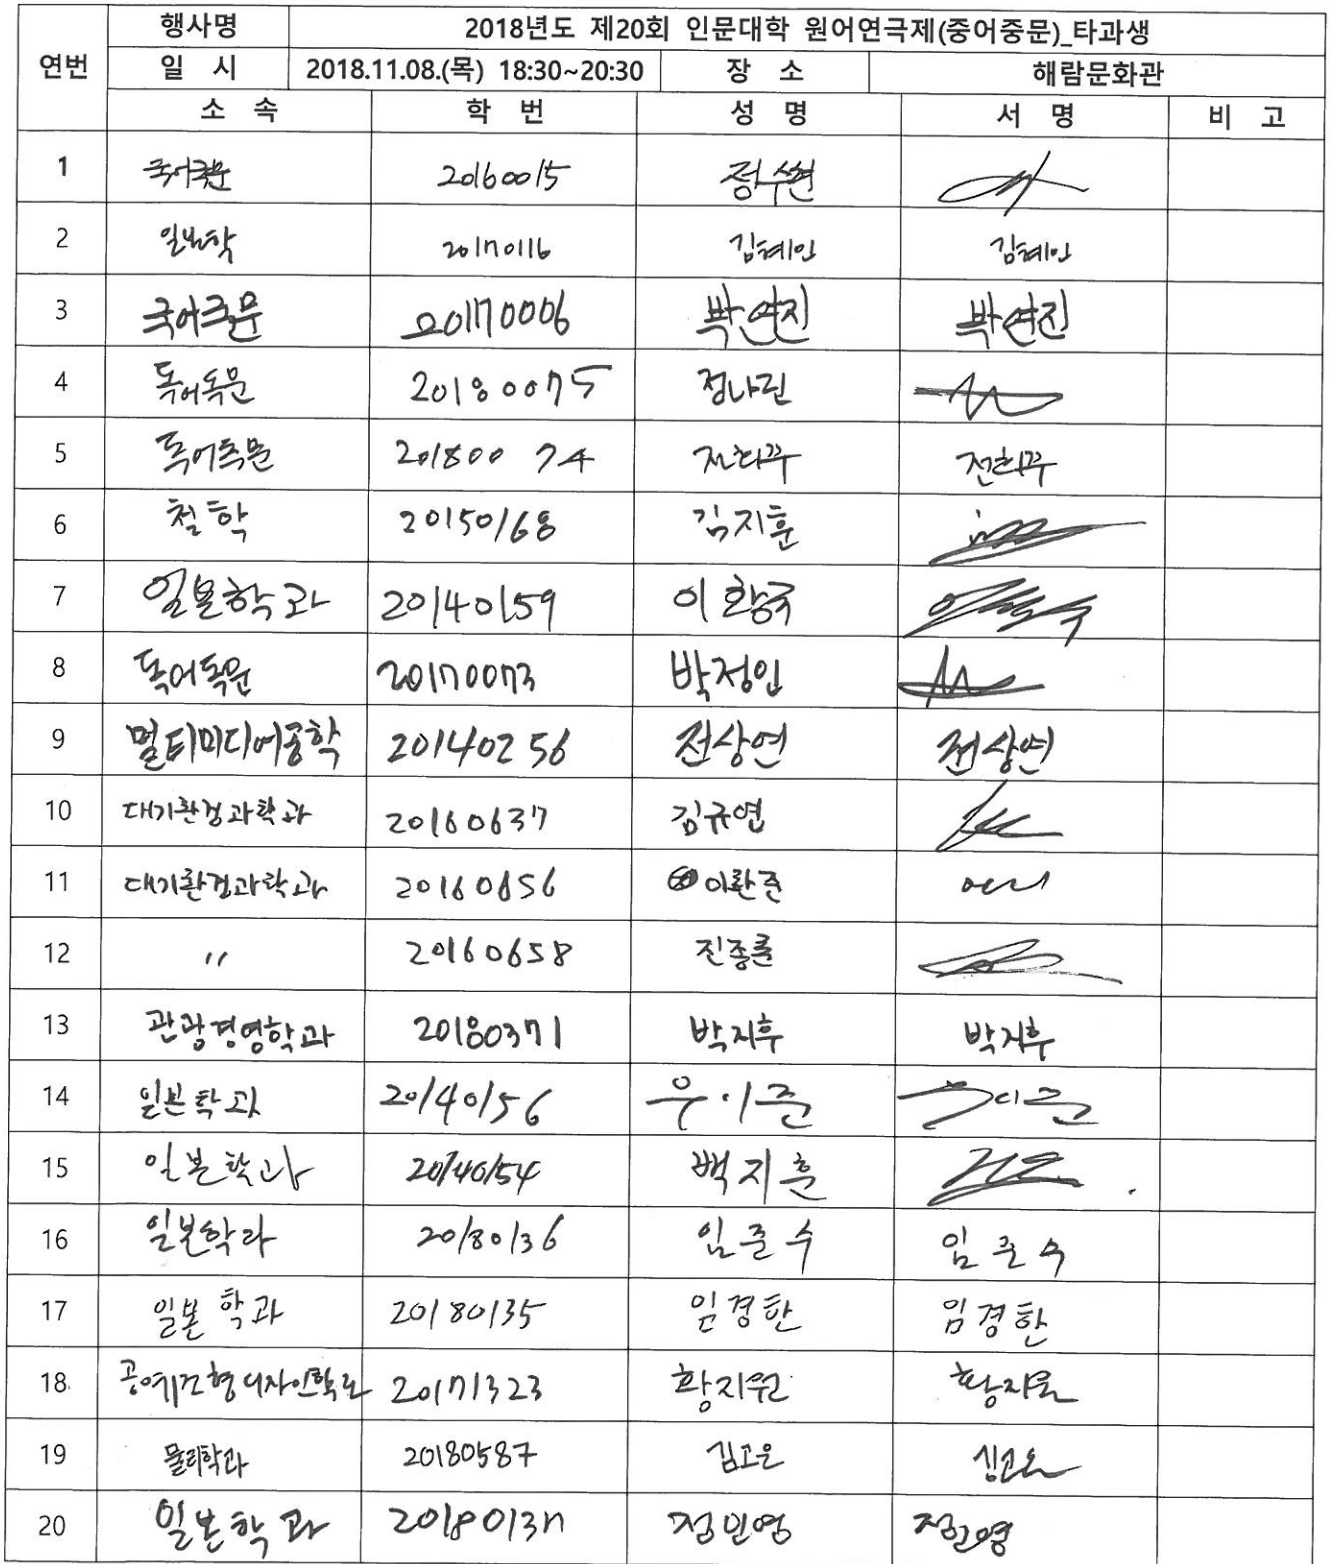 연번 행사명 2018년도 제20회 인문대학 원어연극제(중어중문)_타과생
일 시 2018.11.08.(목) 18:30~20:30 장 소 해람문화관
소 속 학 번 성 명 서 명 비 고
1 국어국문 20160015 정수현
2 일본학 20170116 김혜인 김혜인
3 국어국문 20170006 박연진 박연진
4 독어독문 20180075 정나린
5 독어독문 20180074
6 철학 20150168 김지훈
7 일본학과 20140159 이황국
8 독어독문 20170073 박정인
9 멀티미디어공학 20140256 전상연 전상연
10 대기환경과학과 20160637 김규연
11 대기환경과학과 20160656 이환준
12 〃 20160658
13 관광경영학과 20180371 박지후 박지후
14 일본학과 20140156 우이준
15 일본학과 20140154 백지훈
16 일본학과 20180136 임준수 임준수
17 일본학과 20180135 임경한 임경한
18 20171323 황지원 황지원
19 물리학과 20180587 김고은 김고은
20 일본학과 20180137 정민영 정민영